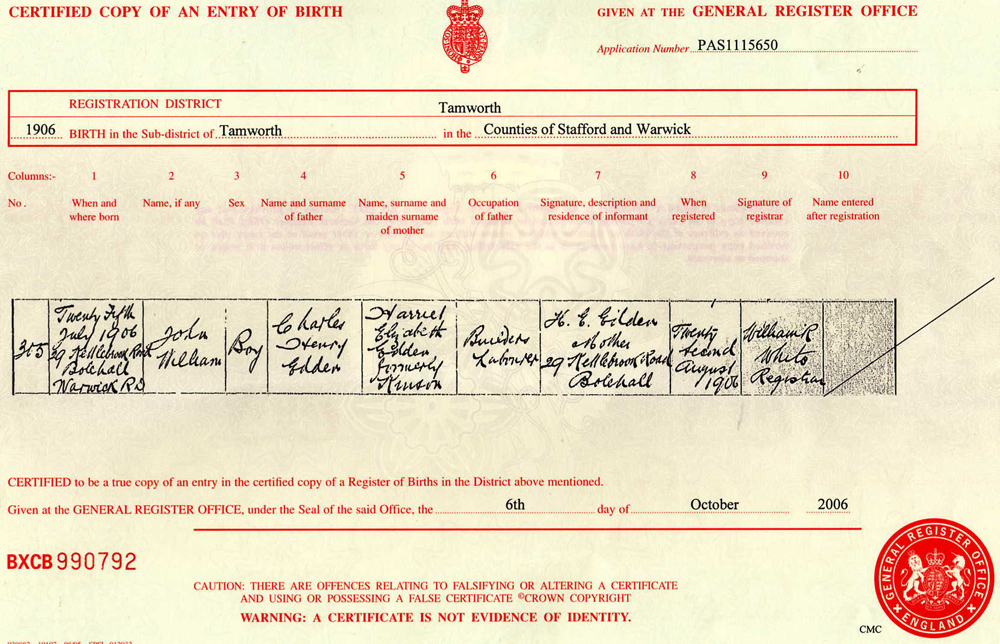 CERTIFIED COPY OF AN ENTRY OF BIRTH
GIVEN AT THE GENERAL REGISTER OFFICE
Application Number PAS1115650
REGISTRATION DISTRICT Tamworth
1906 BIRTH in the Sub-district of Tamworth in the Counties of Stafford and Warwick
Columns:- 1 2 3 4 5 6 7 8 9 10
No. When and where born
Name, if any
Sex
Name and surname of father
Name, surname and maiden surname of mother
Occupation of father
Signature, description and residence of informant
When registered
Signature of registrar
Name entered after registration
305
Twenty Fifth
July 1906
29 Kettlebrook Road
Bolehall
Warwick RD
John
William
Boy
Charles
Henry
Edden
Harriet
Elizabeth
Edden
formerly
Builders
Labourer
H. E. Edden
Mother
29 Kettlebrook Road
Bolehall
Twenty
second
August
1906
William R
White
Registrar
CERTIFIED to be a true copy of an entry in the certified copy of a Register of Births in the District above mentioned.
Given at the GENERAL REGISTER OFFICE, under the Seal of the said Office, the 6th day of October 2006
BXCB 990792
CAUTION: THERE ARE OFFENCES RELATING TO FALSIFYING OR ALTERING A CERTIFICATE
AND USING OR POSSESSING A FALSE CERTIFICATE ©CROWN COPYRIGHT
WARNING: A CERTIFICATE IS NOT EVIDENCE OF IDENTITY.
GENERAL REGISTER OFFICE
ENGLAND
CMC